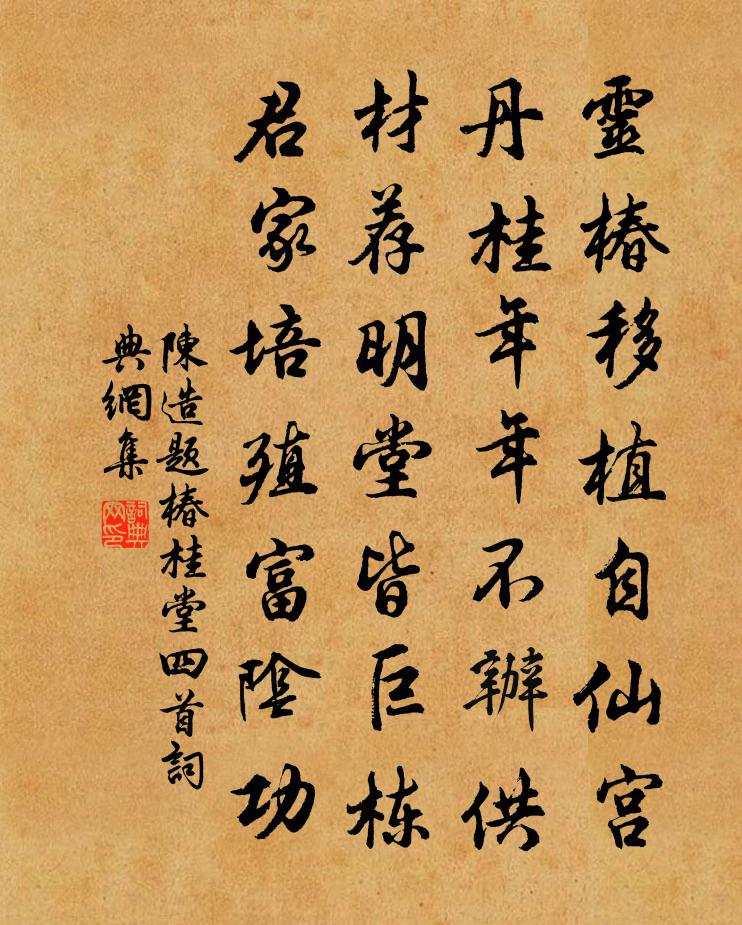 靈椿移植自仙宮
丹桂年年不辦供
材荐明堂皆巨栋
君家培殖富陰功
陳造題椿桂堂四首詞
典網集
詞典
网印